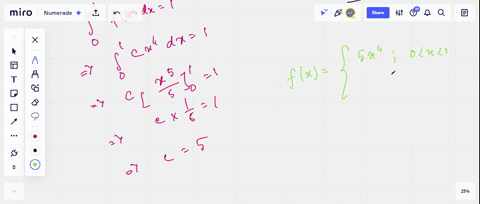 miro
Numerade
Share
∫₀¹ dx = 1
=> ∫₀¹ cx⁴ dx = 1
=> c[x⁵/5]₀¹ = 1
=> c × 1/5 = 1
=> c = 5
f(x) = { 5x⁴ ; 0<x<1
25%